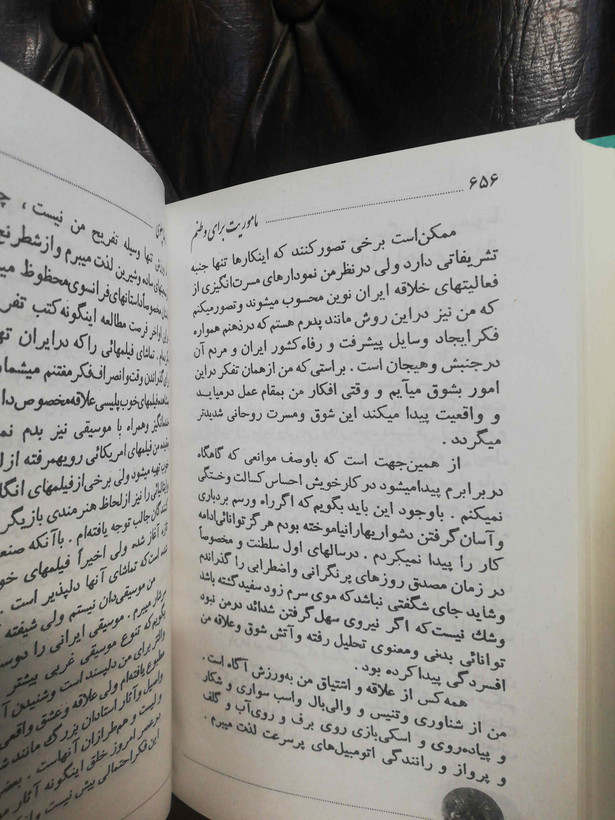 ۶۵۶
ماموریت برای وطنم
ممکن‌است برخی تصورکنند که اینکارها تنها جنبه
تشریفاتی دارد ولی درنظرمن نمودارهای مسرت‌انگیزی از
فعالیتهای خلاقه ایران نوین محسوب میشوند و تصورمیکنم
که من نیز دراین روش مانند پدرم هستم که درذهنم همواره
فکرایجاد وسایل پیشرفت و رفاه کشور ایران و مردم آن
درجنبش وهیجان است . براستی که من ازهمان تفکر دراین
امور بشوق میآیم و وقتی افکار من بمقام عمل درمیایـد
و واقعیت پیدا میکند این شوق ومسرت روحانی شدیدتر
میگردد .
از همین‌جهت است که باوصف موانعی که گاهگاه
دربرابرم پیدامیشود درکارخویش احساس کسالت وخستگی
نمیکنم . باوجود این باید بگویم که اگرراه ورسم بردباری
وآسان گرفتن دشواریهارانیاموخته بودم هرگزتوانائی‌ادامه
کار را پیدا نمیکردم . درسالهای اول سلطنت و مخصوصاً
در زمان مصدق روزهای پرنگرانی واضطرابی را گذراندم
وشاید جای شگفتی نباشدکه موی سرم زود سفیدگشته باشد
وشك نیست‌که اگر نیروی سهل‌گرفتن شدائد درمن نبود
توانائی بدنی ومعنوی تحلیل رفته وآتش شوق وعلاقه من
افسردگی پیداکرده بود .
همه‌کس از علاقه و اشتیاق من به‌ورزش آگاه است .
من از شناوری وتنیس و والی‌بال واسب سواری و شکار
و پیاده‌روی و اسکی‌بازی روی برف و روی‌آب و گلف
و پرواز و رانندگی اتومبیل‌های پرسرعت لذت میبرم .
تنها وسیله تفریح من نیست ،
ساده وشیرین لذت میبرم وازشطرنج
مخصوصاً داستانهای فرانسوی‌محظوظ
فرصت مطالعه اینگونه‌کتب
. تماشای فیلمهائی راکه درایران
گذراندن وقت‌وانصراف‌فکرمغتنم میشمارم
فیلمهای‌خوب‌پلیسی‌علاقه‌مخصوص
وهمراه با موسیقی نیز بدم
من فیلمهای امریکائی رویهمرفته
تهیه میشود ولی برخی ازفیلمهای
را نیز ازلحاظ هنرمندی
جالب توجه یافته‌ام . باآنکه
آغاز شده ولی اخیراً فیلمهای
است‌که تماشای آنها دلپذیر است .
من موسیقی‌دان نیستم ولی شیفته
میبرم . موسیقی ایرانی را
بگویم‌که تنوع موسیقی غربی بیشتر
برای من دلپسند است وشنیدن
مطبوع یافته‌ام ولی علاقه وعشق واقعی
وآثار استادان بزرگ مانند
و لیست و هم‌طرازان آنهاست .
درعصر امروز خلق اینگونه آثار
این فکراحتمالی بیش نیست